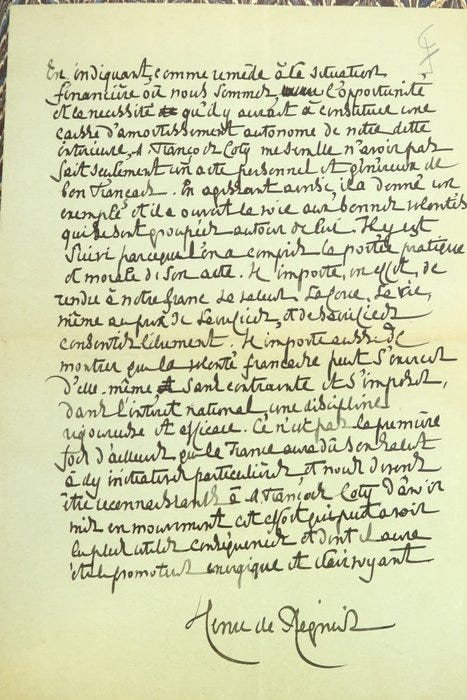 En indiquant, comme remède à la situation
financière où nous sommes, l'opportunité
et la nécessité qu'il y aurait à constituer une
caisse d'amortissement autonome de notre dette
intérieure, M François Coty me semble n'avoir pas
fait seulement un acte personnel et généreux de
bon Français. En agissant ainsi, il a donné un
exemple et il a ouvert la voie aux bonnes volontés
qui se sont groupées autour de lui. Il y est
suivi parce que l'on a compris la portée pratique
et morale de son acte. Il importe, en effet, de
rendre à notre franc sa valeur, sa force, sa vie,
même au prix de sacrifices, et de sacrifices
consentis librement. Il importe aussi de
montrer que la volonté française peut s'exercer
d'elle-même, sans contrainte et s'imposer,
dans l'intérêt national, une discipline
rigoureuse et efficace. Ce n'est pas la première
fois d'ailleurs que la France aura dû son salut
à des initiatives particulières et nous devons
être reconnaissants à M François Coty d'avoir
mis en mouvement cet effort qui peut avoir
les plus utiles conséquences et dont il aura
été le promoteur énergique et clairvoyant.
Henri de Régnier